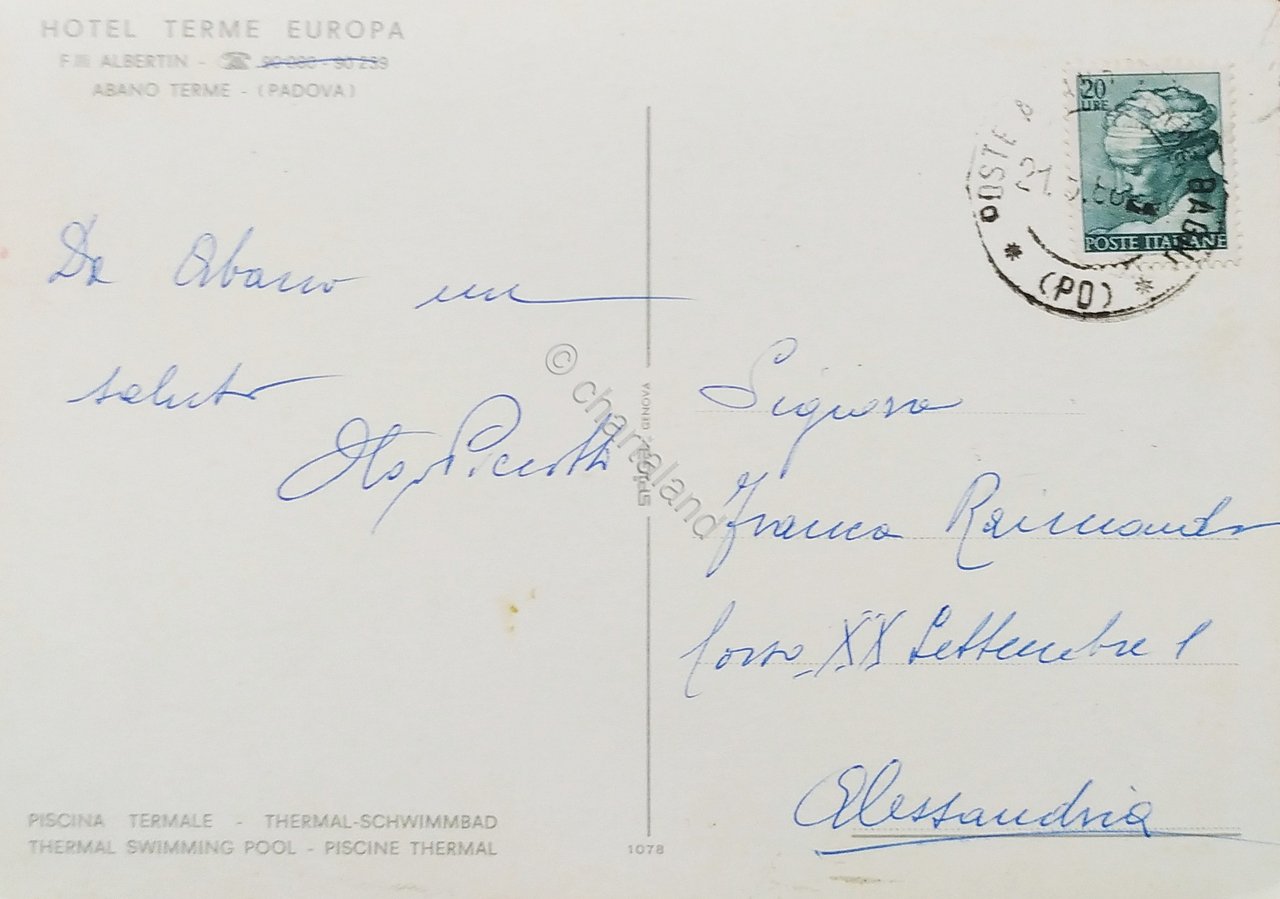 HOTEL TERME EUROPA
F.lli ALBERTIN - ☎ 90 239
ABANO TERME - (PADOVA)
20
LIRE
POSTE ITALIANE
POSTE
BAGNI
* (PD) *
Da Abano un
saluto
Signora
Franca Raimondo
Corso XX Settembre 1
Alessandria
GENOVA
© chartaland
PISCINA TERMALE - THERMAL-SCHWIMMBAD
THERMAL SWIMMING POOL - PISCINE THERMAL
1078